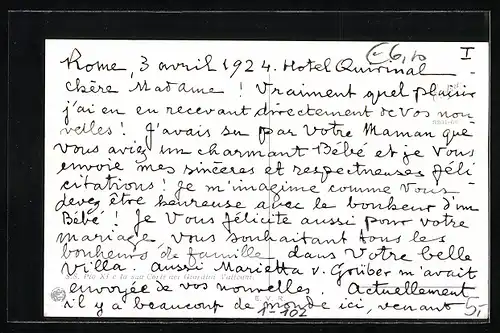 € 6,10 I
Rome, 3 avril 1924. Hotel Quirinal
chère Madame ! Vraiment quel plaisir
j'ai en en recevant directement de vos nou
velles ! J'avais su par Votre Maman que
vous aviez un charmant Bébé et je vous
envoie mes sincères et respectueuses féli
citations ! Je m'imagine comme vous
devez être heureuse avec le bonheur d'un
Bébé ! Je vous félicite aussi pour votre
mariage, vous souhaitant tous les
bonheurs de famille dans votre belle
S.S. Pio XI e la sua Corte nei Giardini Vaticani
Villa. Aussi Marietta v. Griber m'avait
envoyée de vos nouvelles. Actuellement
il y a beaucoup de monde ici, venant
5,-